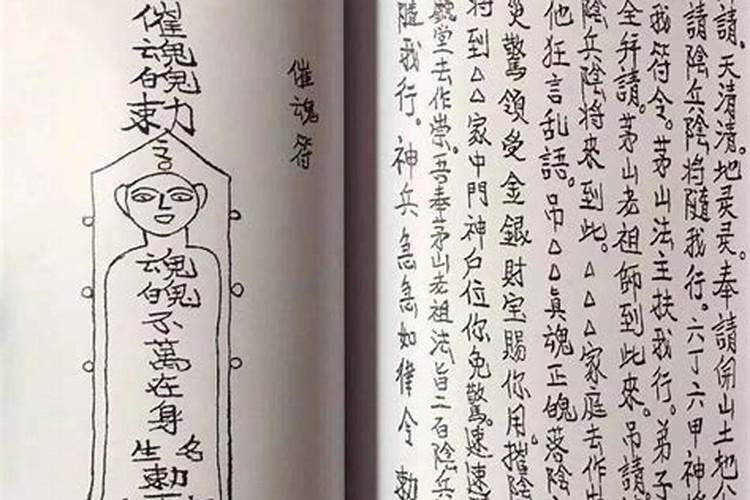 請。天清清。地灵灵。奉請開山土地公
請陰兵陰將隨我行。六丁六甲神將
我符令。茅山法主扶我行。弟子
請。茅山老祖師到此來。吊請
陰兵陰將來到此。△△△家庭去作
他狂言乱語。吊△△真魂正魄落陰
災驚領受金銀財宝賜你用。摧陰
將到△△家中門神户位你免驚。速速
堂去作祟。吾奉茅山老祖法旨二百陰兵
隨我行。神兵急急如律令 勅
催魂符
催魂魄勅
魂魄不萬在身
名
生
勅